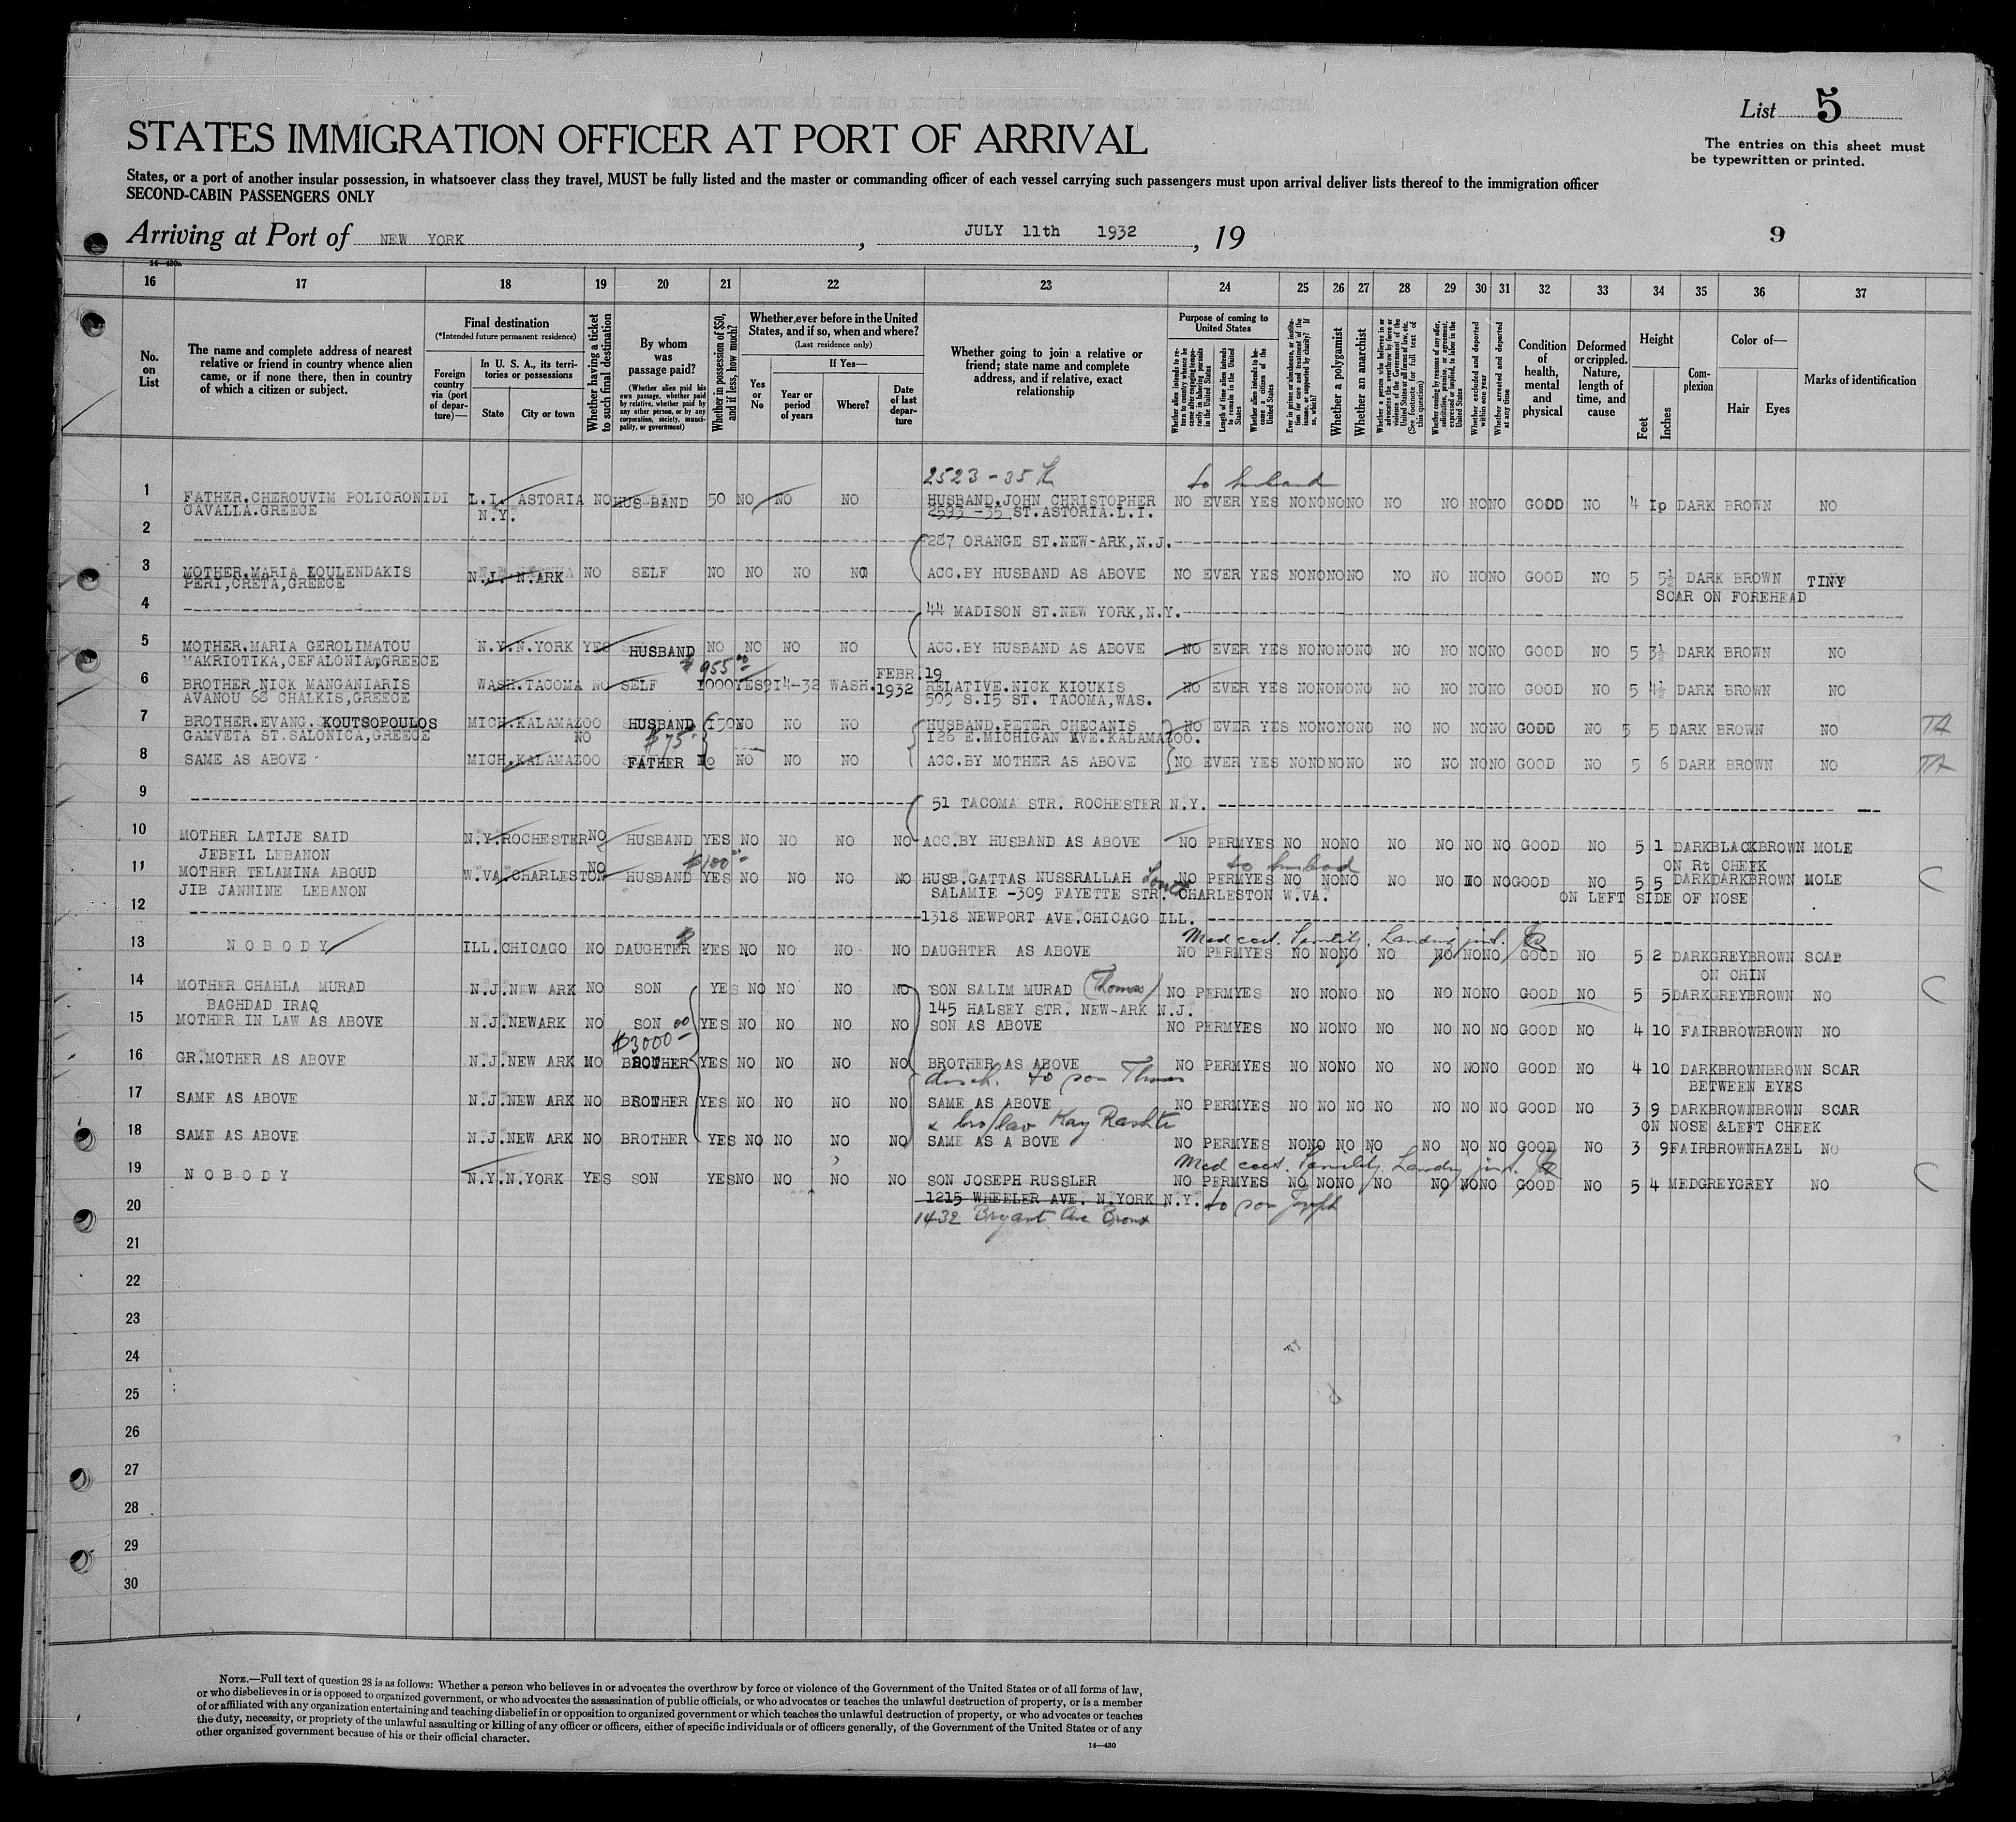 List 5
STATES IMMIGRATION OFFICER AT PORT OF ARRIVAL
The entries on this sheet must
be typewritten or printed.
States, or a port of another insular possession, in whatsoever class they travel, MUST be fully listed and the master or commanding officer of each vessel carrying such passengers must upon arrival deliver lists thereof to the immigration officer
SECOND-CABIN PASSENGERS ONLY
Arriving at Port of NEW YORK, JULY 11th 1932, 19
9
14—430a
16 17 18 19 20 21 22 23 24 25 26 27 28 29 30 31 32 33 34 35 36 37
No. on List
The name and complete address of nearest relative or friend in country whence alien came, or if none there, then in country of which a citizen or subject.
Final destination
(*Intended future permanent residence)
Foreign country via (port of departure)—
In U. S. A., its territories or possessions
State City or town
Whether having a ticket to such final destination
By whom was passage paid?
(Whether alien paid his own passage, whether paid by relative, whether paid by any other person, or by any corporation, society, municipality, or government)
Whether in possession of $50, and if less, how much?
Whether ever before in the United States, and if so, when and where?
(Last residence only)
Yes or No
If Yes—
Year or period of years
Where?
Date of last departure
Whether going to join a relative or friend; state name and complete address, and if relative, exact relationship
Purpose of coming to United States
Whether alien intends to return to country whence he came after engaging temporarily in laboring pursuits in the United States
Length of time alien intends to remain in the United States
Whether alien intends to become a citizen of the United States
Ever in prison or almshouse, or institution for care and treatment of the insane, or supported by charity? If so, which?
Whether a polygamist
Whether an anarchist
Whether a person who believes in or advocates the overthrow by force or violence of the Government of the United States or all forms of law, etc. (See footnote for full text of this question)
Whether coming by reasons of any offer, solicitation, promise, or agreement, expressed or implied, to labor in the United States
Whether excluded and deported within one year
Whether arrested and deported at any time
Condition of health, mental and physical
Deformed or crippled. Nature, length of time, and cause
Height
Feet Inches
Complexion
Color of—
Hair Eyes
Marks of identification
2523-35th to husband
1 FATHER.CHEROUVIM POLICRONIDI L.I. ASTORIA NO HUSBAND 50 NO NO NO HUSBAND.JOHN CHRISTOPHER NO EVER YES NO NO NO NO NO NO NO NO GOOD NO 4 10 DARK BROWN NO
CAVALLA.GREECE N.Y. 2593 -35 ST.ASTORIA.L.I.
2 287 ORANGE ST.NEW-ARK,N.J.
3 MOTHER.MARIA KOULENDAKIS N.J. N.ARK NO SELF NO NO NO NO ACC.BY HUSBAND AS ABOVE NO EVER YES NO NO NO NO NO NO NO NO GOOD NO 5 5½ DARK BROWN TINY
PERI,CRETA,GREECE SCAR ON FOREHEAD
4 44 MADISON ST.NEW YORK,N.Y.
5 MOTHER.MARIA GEROLIMATOU N.Y.N.YORK YES HUSBAND NO NO NO NO ACC.BY HUSBAND AS ABOVE NO EVER YES NO NO NO NO NO NO NO NO GOOD NO 5 3½ DARK BROWN NO
MAKRIOTIKA,CEFALONIA,GREECE $955.00 FEBR.19
6 BROTHER NICK MANGANIARIS WASH.TACOMA NO SELF 1000 YES 914-32 WASH. 1932 RELATIVE.NICK KIOUKIS NO EVER YES NO NO NO NO NO NO NO NO GOOD NO 5 4½ DARK BROWN NO
AVANOU 68 CHALKIS,GREECE 509 S.I5 ST. TACOMA,WAS.
7 BROTHER.EVANG.KOUTSOPOULOS MICH.KALAMAZOO HUSBAND 150 NO NO NO HUSBAND.PETER CHECANIS NO EVER YES NO NO NO NO NO NO NO NO GOOD NO 5 5 DARK BROWN NO
GAMVETA ST.SALONICA,GREECE NO $75 126 E.MICHIGAN AVE.KALAMAZOO.
8 SAME AS ABOVE MICH.KALAMAZOO FATHER NO NO NO ACC.BY MOTHER AS ABOVE NO EVER YES NO NO NO NO NO NO NO NO GOOD NO 5 6 DARK BROWN NO
9 51 TACOMA STR. ROCHESTER N.Y.
10 MOTHER LATIJE SAID N.Y.ROCHESTER NO HUSBAND YES NO NO NO NO ACC.BY HUSBAND AS ABOVE NO PERM YES NO NO NO NO NO NO NO GOOD NO 5 1 DARK BLACK BROWN MOLE
JEBEIL LEBANON $100.00 to husband ON Rt CHEEK
11 MOTHER TELAMINA ABOUD W.VA.CHARLESTON NO HUSBAND YES NO NO NO NO HUSB.GATTAS NUSSRALLAH NO PERM YES NO NO NO NO NO NO NO GOOD NO 5 5 DARK DARK BROWN MOLE
JIB JANNINE LEBANON SALAMIE -309 FAYETTE STR. CHARLESTON W.VA. ON LEFT SIDE OF NOSE
12 1318 NEWPORT AVE.CHICAGO ILL.
Med cert. Senility. Landing
13 NOBODY ILL.CHICAGO NO DAUGHTER YES NO NO NO NO DAUGHTER AS ABOVE NO PERM YES NO NO NO NO NO NO NO GOOD NO 5 2 DARK GREY BROWN SCAR
ON CHIN
14 MOTHER CHAHLA MURAD N.J.NEW ARK NO SON YES NO NO NO NO SON SALIM MURAD (Thomas) NO PERM YES NO NO NO NO NO NO NO GOOD NO 5 5 DARK GREY BROWN NO
BAGHDAD IRAQ 145 HALSEY STR. NEW-ARK N.J.
15 MOTHER IN LAW AS ABOVE N.J.NEWARK NO SON YES NO NO NO NO SON AS ABOVE NO PERM YES NO NO NO NO NO NO NO GOOD NO 4 10 FAIR BROW BROWN NO
$3000.00
16 GR.MOTHER AS ABOVE N.J.NEW ARK NO BROTHER YES NO NO NO NO BROTHER AS ABOVE NO PERM YES NO NO NO NO NO NO NO GOOD NO 4 10 DARK BROWN BROWN SCAR
to son Thomas BETWEEN EYES
17 SAME AS ABOVE N.J.NEW ARK NO BROTHER YES NO NO NO NO SAME AS ABOVE NO PERM YES NO NO NO NO NO NO NO GOOD NO 3 9 DARK BROWN BROWN SCAR
& bro/law ON NOSE &LEFT CHEEK
18 SAME AS ABOVE N.J.NEW ARK NO BROTHER YES NO NO NO NO SAME AS A BOVE NO PERM YES NO NO NO NO NO NO NO GOOD NO 3 9 FAIR BROWN HAZEL NO
Med cert. Senility. Landing
19 NOBODY N.Y.N.YORK YES SON YES NO NO NO NO SON JOSEPH RUSSLER NO PERM YES NO NO NO NO NO NO NO GOOD NO 5 4 MED GREY GREY NO
1215 WHEELER AVE. N.YORK N.Y. to son Joseph
20 1432 Bryant Ave Bronx
21
22
23
24
25
26
27
28
29
30
NOTE.—Full text of question 28 is as follows: Whether a person who believes in or advocates the overthrow by force or violence of the Government of the United States or of all forms of law,
or who disbelieves in or is opposed to organized government, or who advocates the assassination of public officials, or who advocates or teaches the unlawful destruction of property, or is a member
of or affiliated with any organization entertaining and teaching disbelief in or opposition to organized government or which teaches the unlawful destruction of property, or who advocates or teaches
the duty, necessity, or propriety of the unlawful assaulting or killing of any officer or officers, either of specific individuals or of officers generally, of the Government of the United States or of any
other organized government because of his or their official character.
14—430